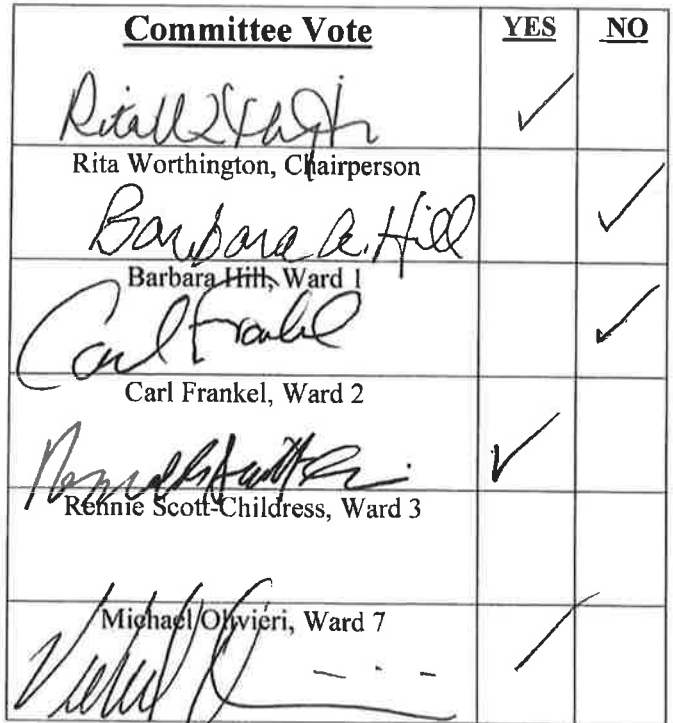 Committee Vote YES NO
Rita Worthington, Chairperson
Barbara A. Hill
Barbara Hill, Ward 1
Carl Frankel
Carl Frankel, Ward 2
Rennie Scott-Childress, Ward 3
Michael Olivieri, Ward 7